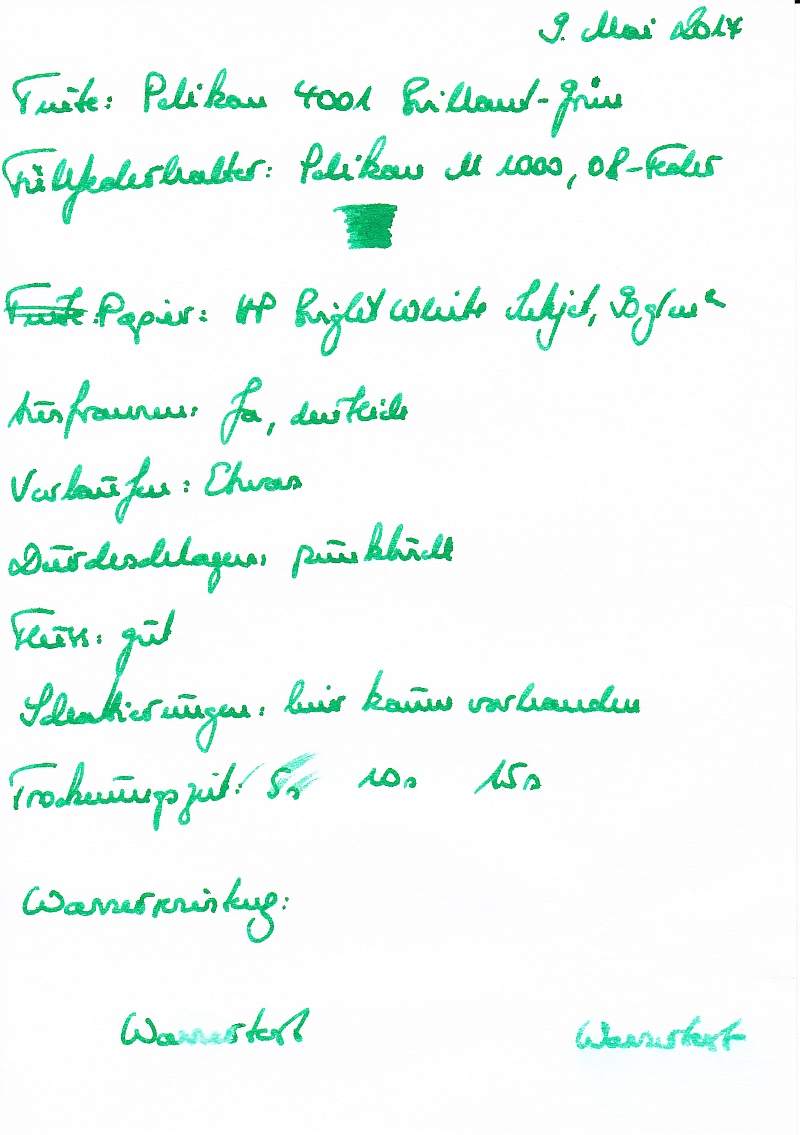 9. Mai 2017
Tinte: Pelikan 4001 Brillant-Grün
Füllfederhalter: Pelikan M 1000, OB-Feder
Tinte Papier: HP Bright White Inkjet, 90g/m²
Ausfransen: Ja, deutlich
Verlaufen: Etwas
Durchschlagen: pünktlich
Fluss: gut
Schattierungen: hier kaum vorhanden
Trocknungszeit: 5s 10s 15s
Wasserresistenz:
Wassertest Wassertest